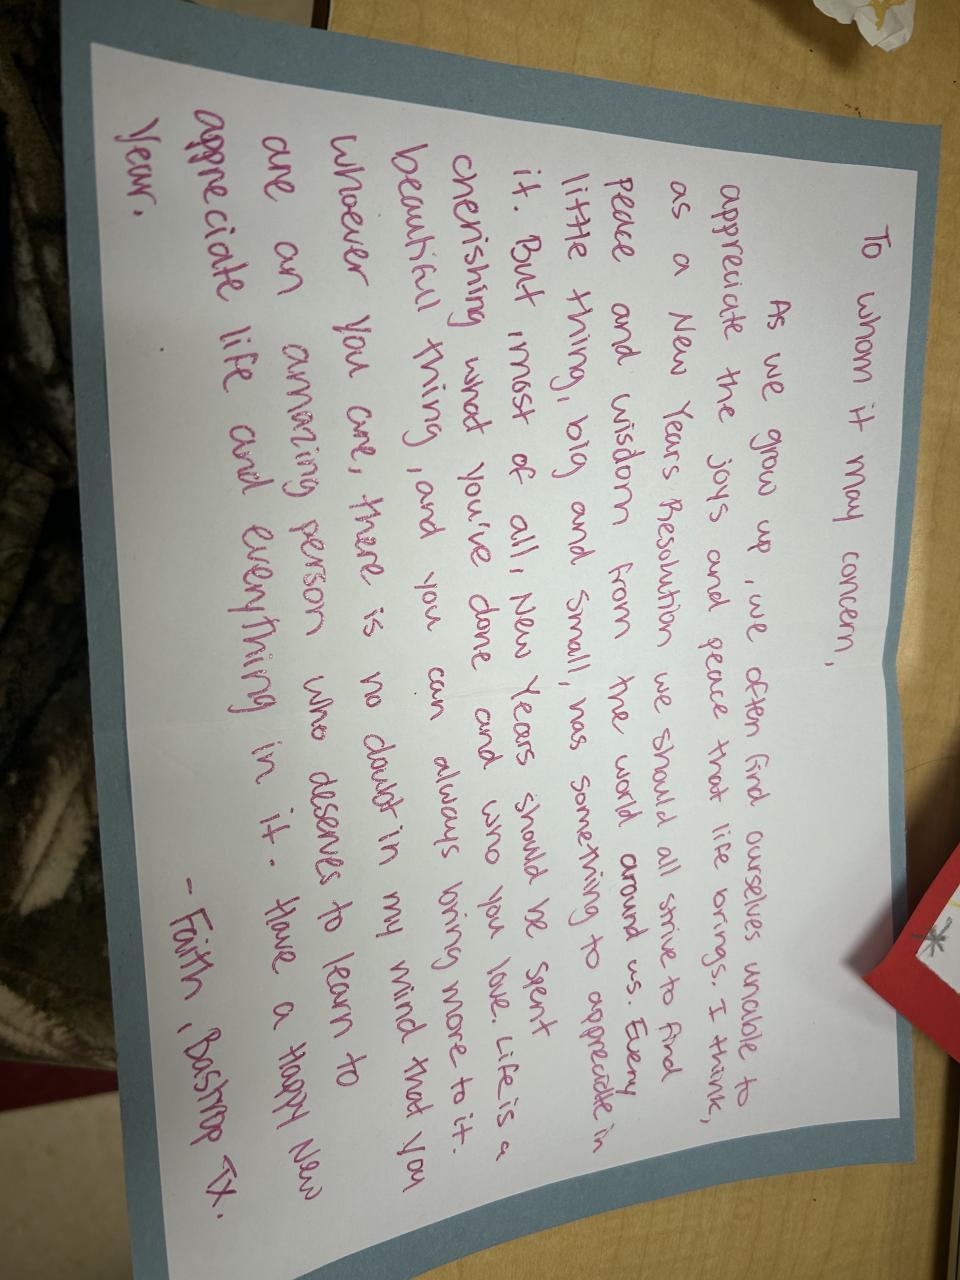 To whom it may concern,
As we grow up, we often find ourselves unable to
appreciate the joys and peace that life brings. I think,
as a New Years Resolution we should all strive to find
Peace and wisdom from the world around us. Every
little thing, big and small, has something to appreciate in
it. But most of all, New Years should be spent
cherishing what you've done and who you love. Life is a
beautiful thing, and you can always bring more to it.
Whoever you are, there is no doubt in my mind that you
are an amazing person who deserves to learn to
appreciate life and everything in it. Have a Happy New
Year.
- Faith, Bastrop TX.